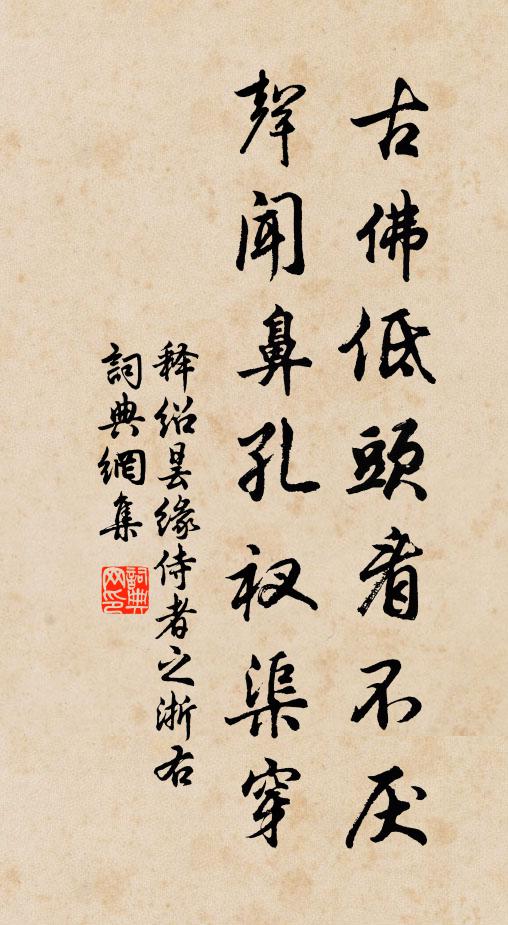 古佛低頭看不厌
聲聞鼻孔被渠穿
释绍昙缘侍者之浙右
詞典網集
詞典网印